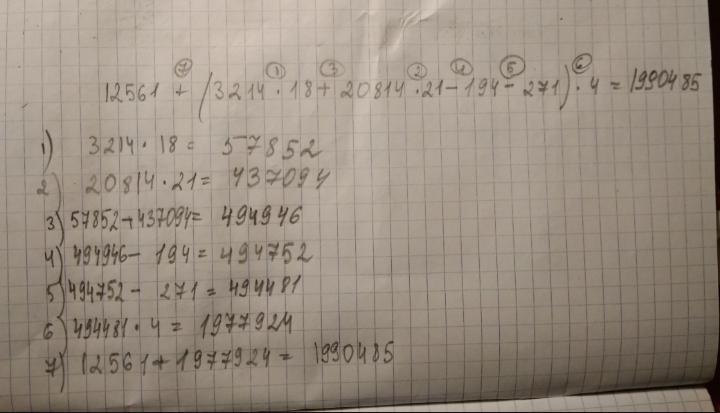 ⑦ ① ③ ② ④ ⑤ ⑥
12561 + (3214 · 18 + 20814 · 21 - 194 - 271) · 4 = 1990485
1) 3214 · 18 = 57852
2) 20814 · 21 = 437094
3) 57852 + 437094 = 494946
4) 494946 - 194 = 494752
5) 494752 - 271 = 494481
6) 494481 · 4 = 1977924
7) 12561 + 1977924 = 1990485